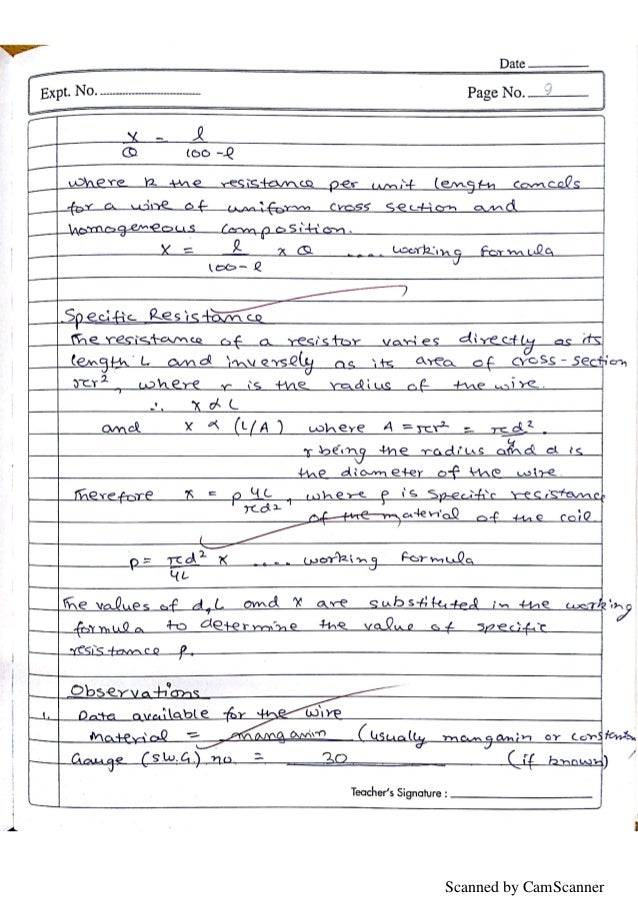 Date
Expt. No.
Page No. 9
x/Q = l/100-l
where k the resistance per unit length cancels
for a wire of uniform cross section and
homogeneous composition.
x = l/100-l x Q .... working formula
Specific Resistance
The resistance of a resistor varies directly as its
length L and inversely as its area of cross-section
πr², where r is the radius of the wire.
∴ x ∝ L
and x ∝ (L/A) where A = πr² = πd²/4.
r being the radius and d is
the diameter of the wire.
Therefore x = ρ 4L/πd², where ρ is specific resistance
of the material of the coil
ρ = πd²/4L x .... working formula
The values of d, L and x are substituted in the working
formula to determine the value of specific
resistance ρ.
Observations
1. Data available for the wire
Material = manganin (usually manganin or constantan
Gauge (S.W.G.) no. = 30 (if known)
Teacher's Signature :
Scanned by CamScanner